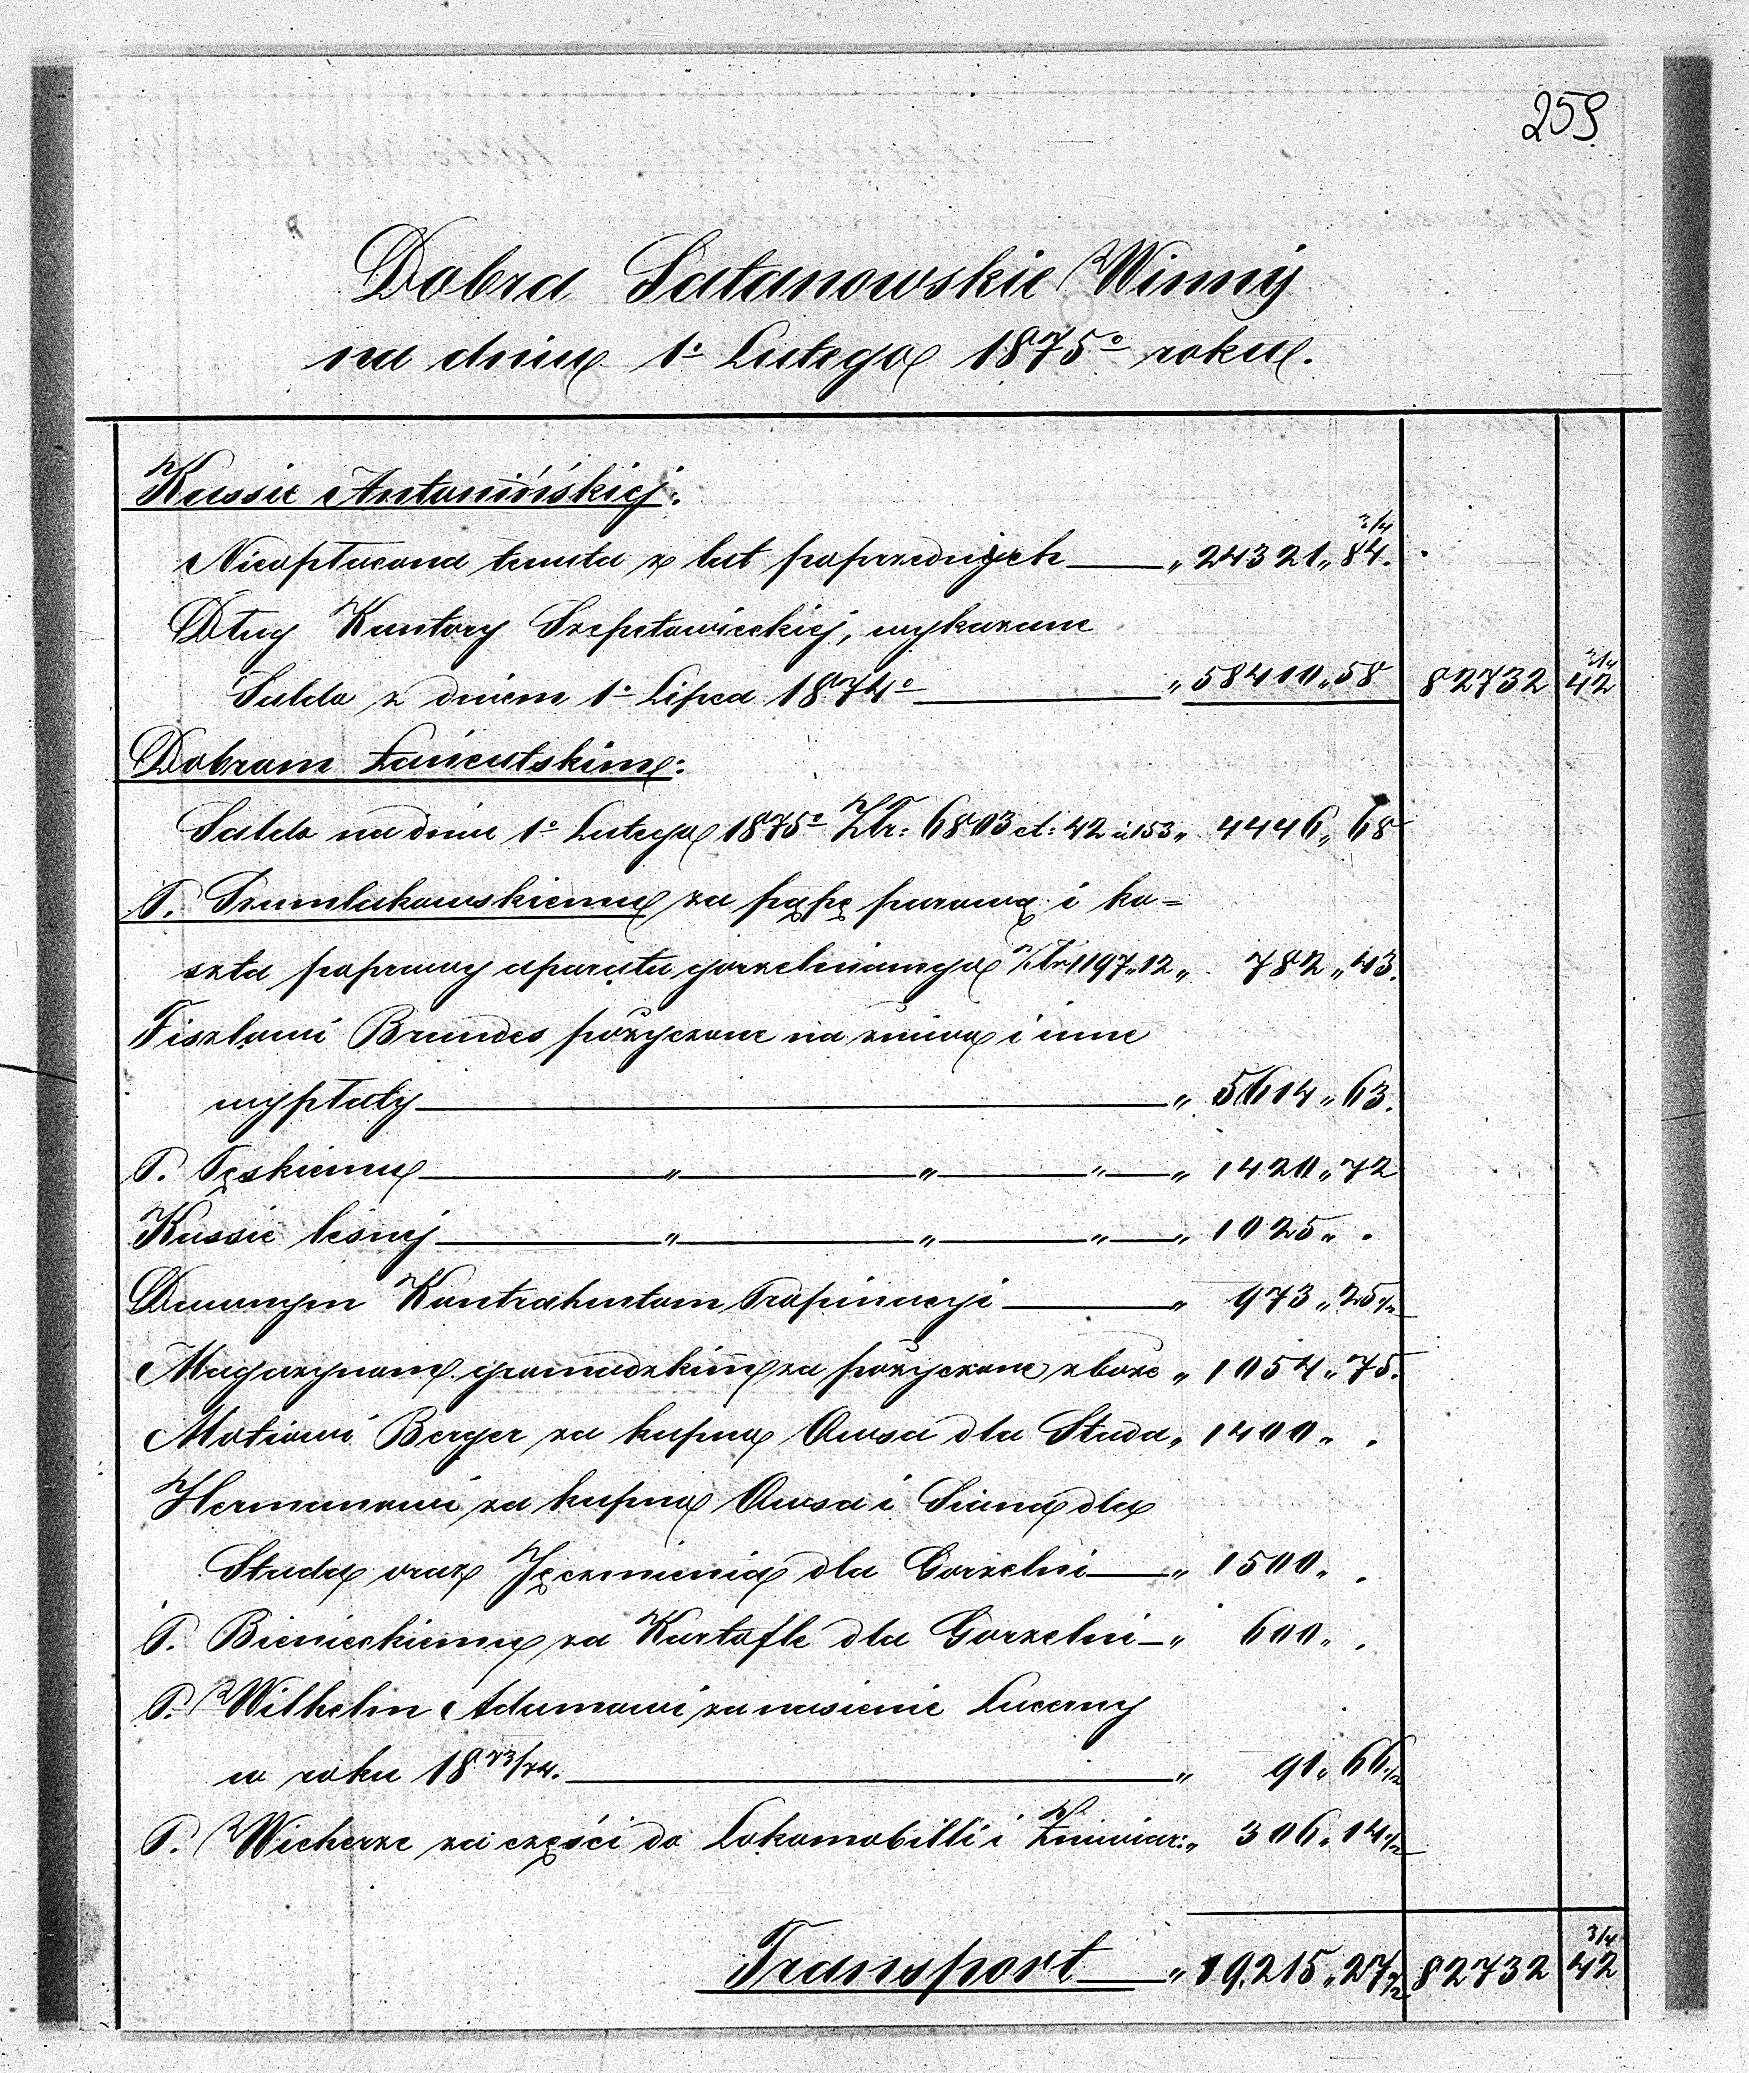 259.
Dobra Satanowskie Winny
na dniu 1º Lutego 1875º roku.
Kassie Antonińskiej:
Nieopłacona tenuta z lat poprzednich — „ 24321 „ 84 3/4.
Dług Kantory Szepetowieckiej, wykazane
Saldo z dniem 1º Lipca 1874º — „ 58410 „ 58 82732 42 3/4
Dobrom Łańcutskim:
Saldo na dniu 1º Lutego 1875º Złr: 6803 ct: 42 à 153 „ 4446 „ 68
P. Szumlakowskiemu za pąpę parową i ko=
szta poprawy aparatu gorzelnianego Złr 1197 „ 12 „ 782 „ 43.
Fiszlowi Brandes pożyczone na żniwa i inne
wypłaty — „ 5614 „ 63.
P. Tęskiemu — „ — „ — „ — „ 1420 „ 72
Kassie leśnéj — „ — „ — „ — „ 1025 „ .
Dawnym Kontrahentom Propinacyi — „ 973 „ 25 1/2
Magazynom gromadzkim za pożyczone zboże „ 1054 „ 75.
Motiowi Berger za kupno Owsa dla Stada „ 1400 „ .
Hermanowi za kupno Owsa i Siana dla
Stada oraz Jęczmienia dla Gorzelni — „ 1500 „ .
P. Bienieckiemu za Kartofle dla Gorzelni — „ 600 „ .
P. Wilhelm Adamowi za nasienie Lucerny
w roku 18 73/74. — „ 91 „ 66 1/2
P. Wicherze za części do Lokomobilli i Żniwiar: „ 306 „ 14 1/2
Transport — „ 19,215 „ 27 1/2 82732 42 3/4